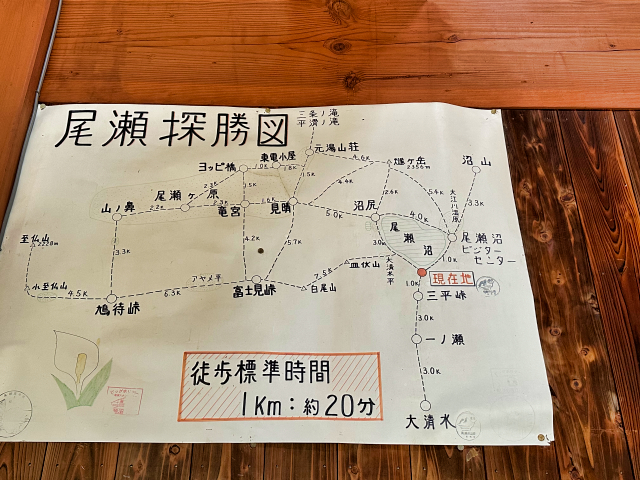 尾瀬探勝図
三条ノ滝
平滑ノ滝
元湯山荘
東電小屋
ヨッピ橋
1.0K
1.8K
4.6K
燧ヶ岳
2356m
沼山
尾瀬ヶ原
2.3K
1.5K
1.5K
4.4K
2.6K
5.4K
大江川湿原
3.3K
山ノ鼻
2.2K
2.3K
竜宮
1.6K
見晴
5.0K
沼尻
4.0K
尾瀬沼
尾瀬沼
ビジター
センター
至仏山
2228m
3.3K
4.2K
5.7K
3.0K
大清水平
1.0K
皿伏山
7.5K
現在地
小至仏山
4.5K
鳩待峠
アヤメ平
6.3K
富士見峠
白尾山
1.0K
三平峠
3.0K
一ノ瀬
3.0K
大清水
徒歩標準時間
1Km:約20分